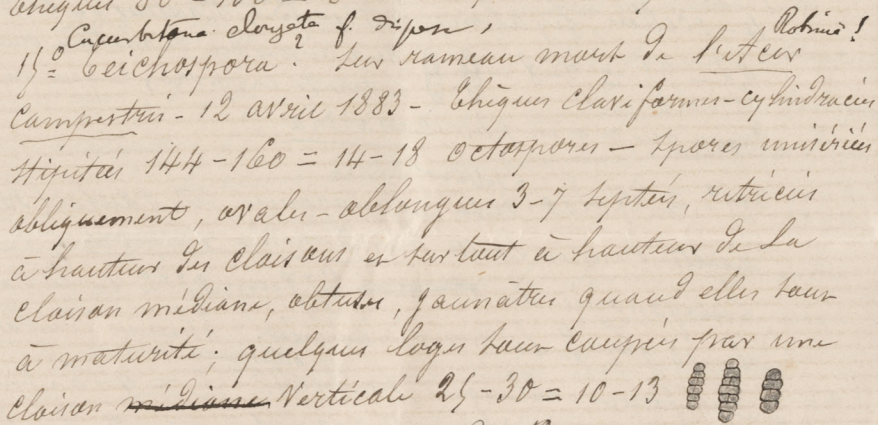 Cucurbitaria elongata f. dispersa, Robiniae!
15º= Teichospora? sur rameau mort de l'Acer
campestris - 12 avril 1883 - Thèques claviformes-cylindracées
stipitées 144-160 = 14-18 octospores - spores unisériées
obliquement, ovales-oblongues 3-7 septées, rétrécies
à hauteur des cloisons et surtout à hauteur de la
cloison médiane, obtuses, jaunâtres quand elles sont
à maturité; quelques loges sont coupées par une
cloison médiane verticale 25-30 = 10-13